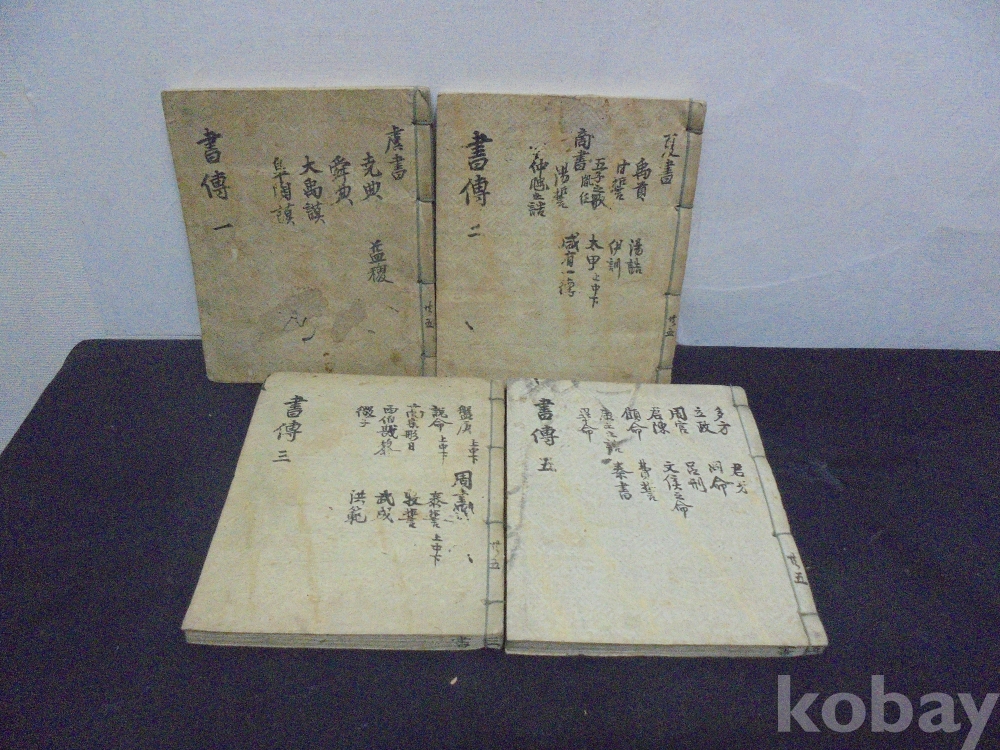 書傳 一
虞書
堯典
舜典
大禹謨
皐陶謨
益稷
共五
書傳 二
夏書
禹貢
甘誓
五子之歌
胤征
商書
湯誓
仲虺之誥
湯誥
伊訓
太甲 上中下
咸有一德
共五
書傳 三
盤庚 上中下
說命 上中下
高宗肜日
西伯戡黎
微子
周書
泰誓 上中下
牧誓
武成
洪範
共五
書傳 五
多方
立政
周官
君陳
顧命
康王之誥
畢命
君牙
冏命
呂刑
文侯之命
費誓
秦書
共五
kobay